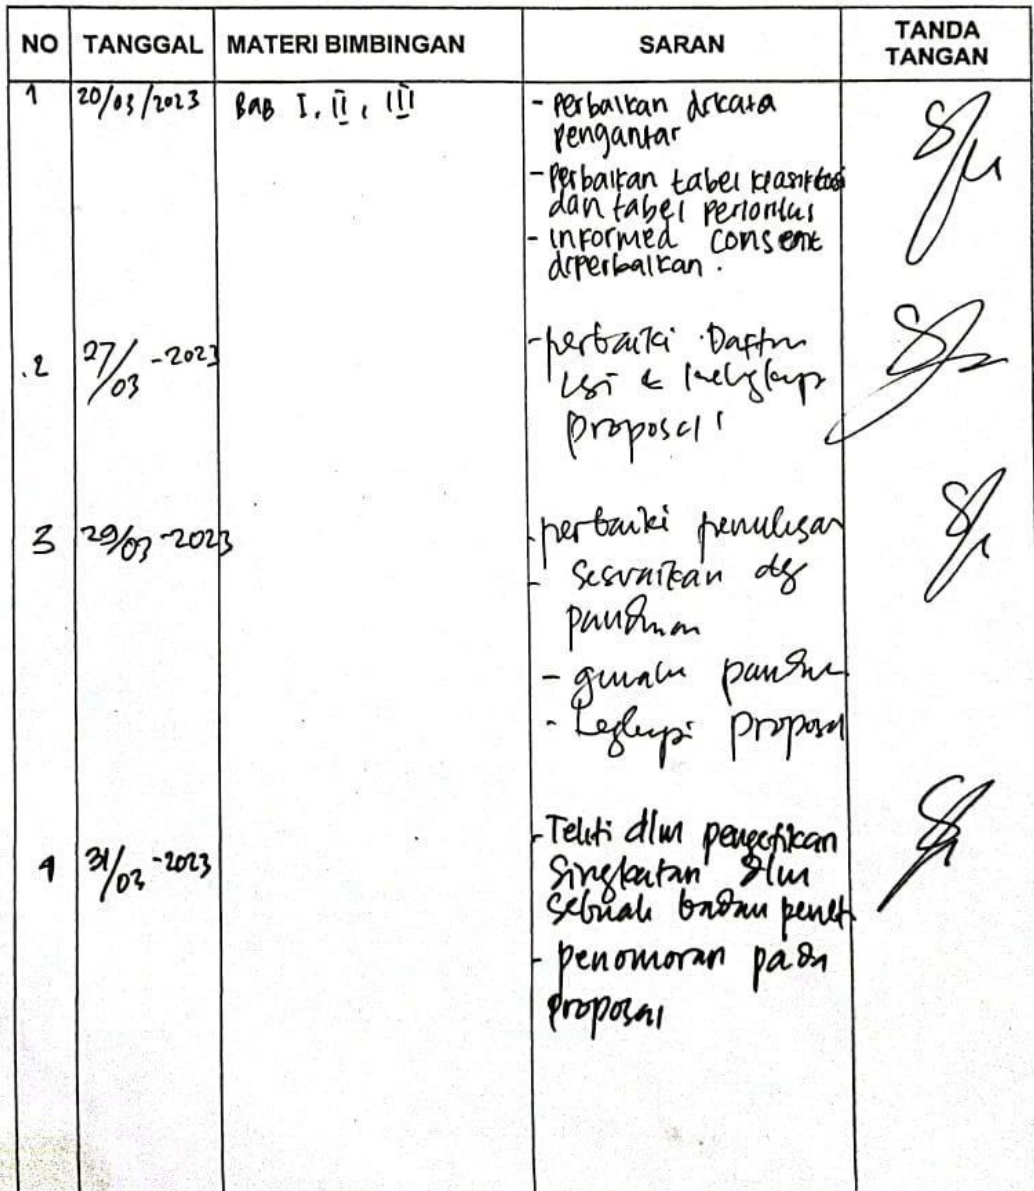 NO TANGGAL MATERI BIMBINGAN SARAN TANDA TANGAN
1 20/03/2023 BAB I, II, III - Perbaikan dikata
pengantar
- Perbaikan tabel
dan tabel
- informed consent
diperbaikan.
2 27/03-2023 - perbaiki Daftar
isi &
proposal
3 29/03-2023 - perbaiki penulisan
- sesuaikan dg
panduan
- panduan
- Lengkapi proposal
4 31/03-2023 - Teliti dlm pengetikan
Singkatan dlm
sebuah badan
- penomoran pada
proposal